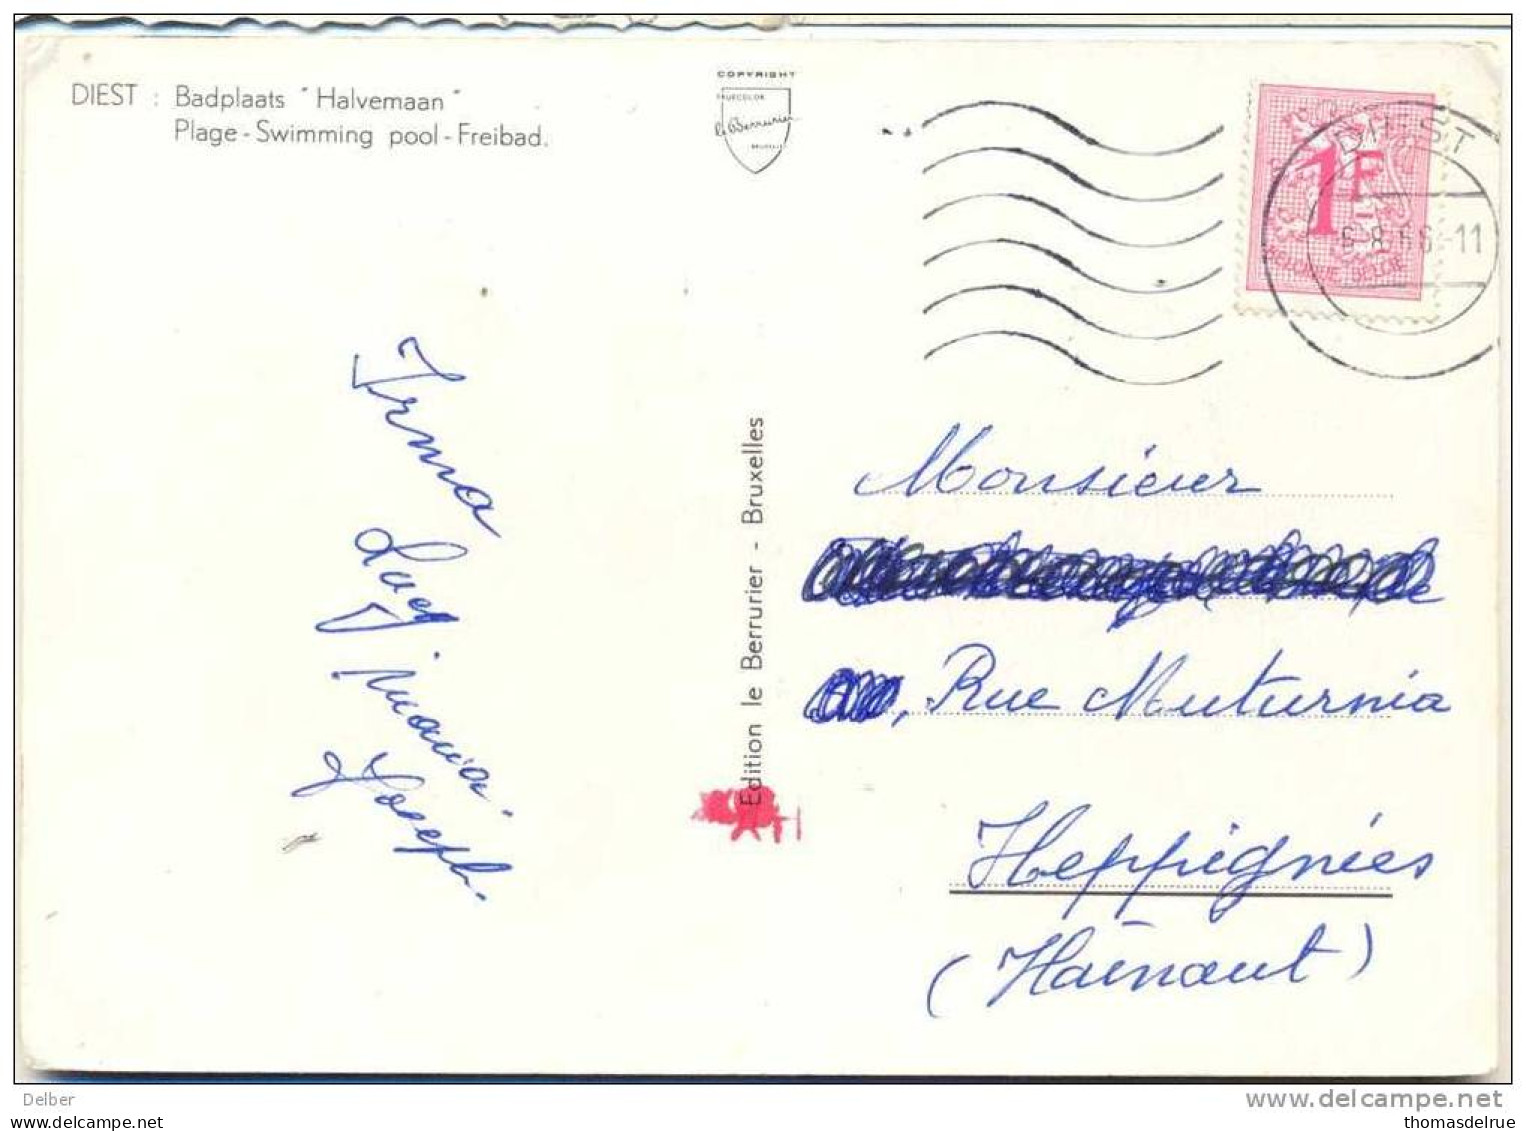 DIEST : Badplaats "Halvemaan"
Plage - Swimming pool - Freibad.
COPYRIGHT
TRUECOLOR
le Berrurier
BRUXELLES
1F
BELGIQUE BELGIË
DIEST
6-8.66-11
Irma
Lucy
Maria.
Joseph.
Edition le Berrurier - Bruxelles
Monsieur
, Rue Muturnia
Heppignies
(Hainaut)
Delber
www.delcampe.net
www.delcampe.net
thomasdelrue